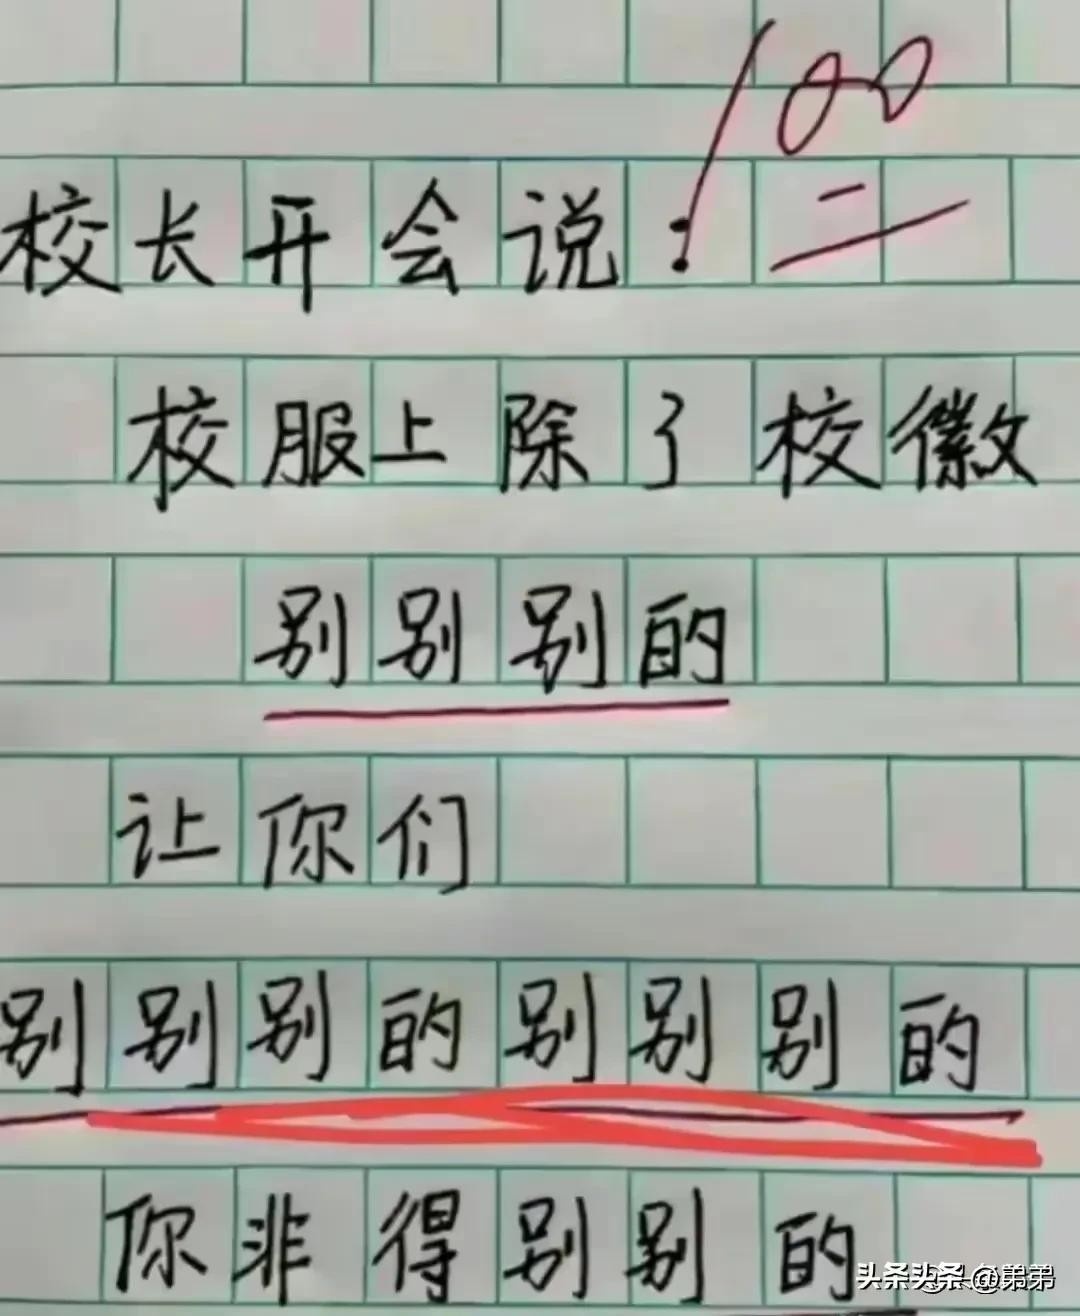 100
校长开会说:
校服上除了校徽
别别别的
让你们
别别别的别别别的
你非得别别的
头条头条 @弟弟